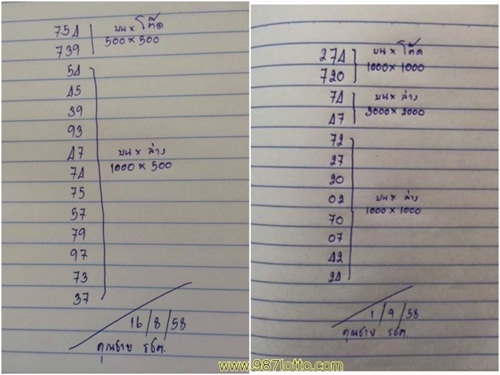 754
739
บน x โต๊ด
500 x 500
54
45
39
93
47
74
75
57
79
97
73
37
บน x ล่าง
1000 x 500
16/8/58
คุณชาย รชต.
274
720
บน x โต๊ด
1000 x 1000
74
47
บน x ล่าง
2000 x 2000
72
27
20
02
70
07
42
24
บน x ล่าง
1000 x 1000
1/9/58
คุณชาย รชต.
www.987lotto.com